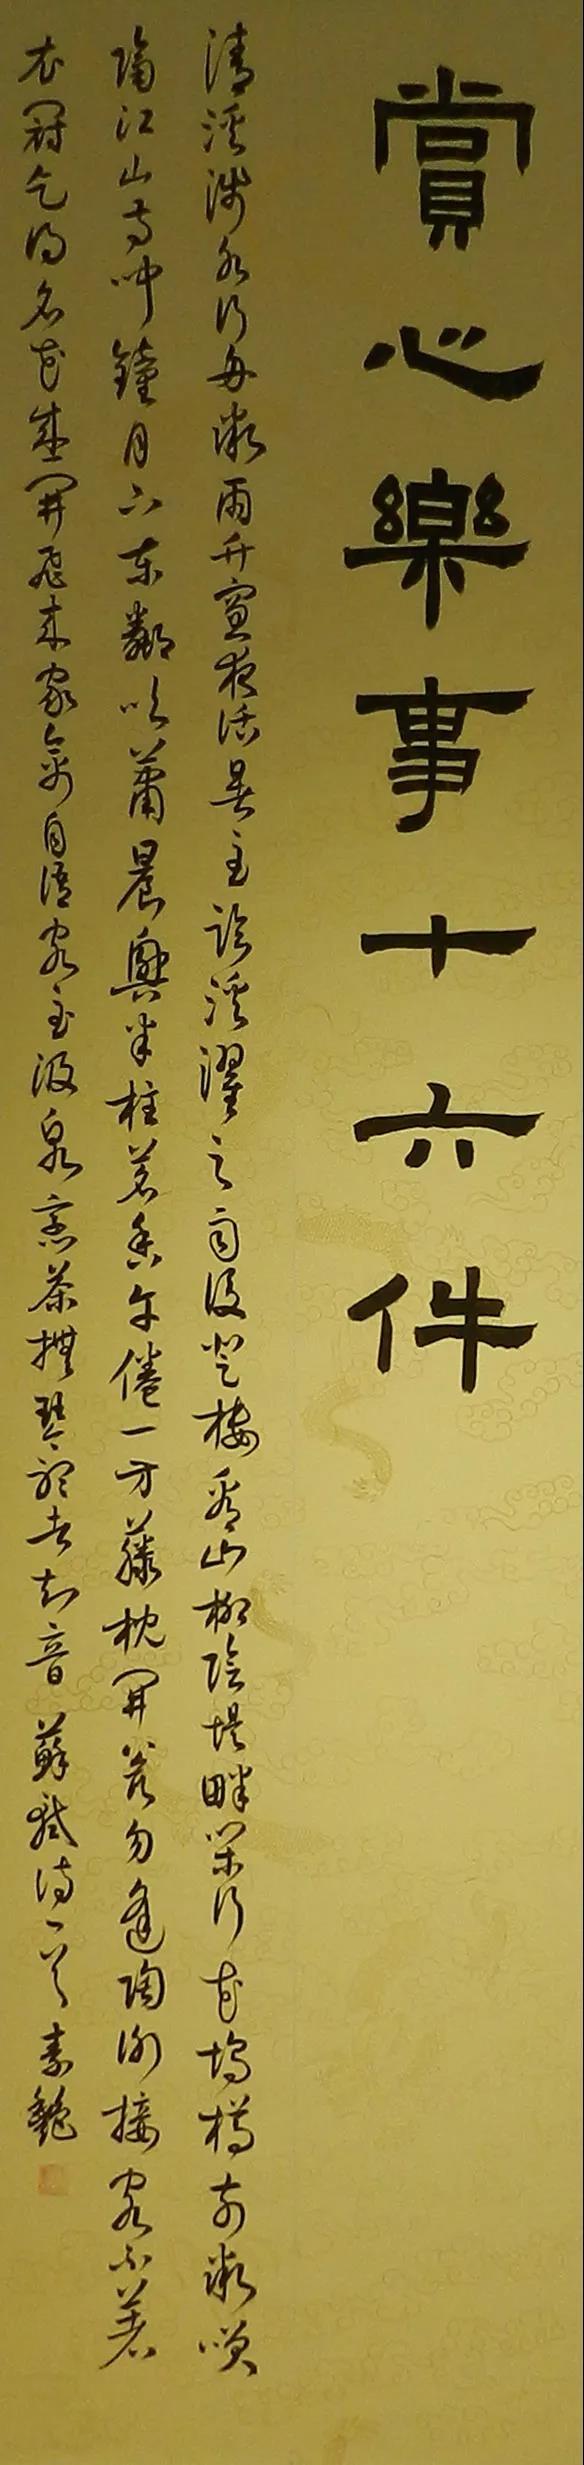 賞心樂事十六件
清溪淺水行舟微雨竹窗夜話暑至臨溪濯足雨後登樓看山柳陰堤畔閑行花塢樽前微咲
隔江山寺聞鐘月下東鄰吹簫晨興半柱茗香午倦一方藤枕開瓮勿逢陶謝接客不著
衣冠乞得名花盛開飛來家禽自語客至汲泉烹茶撫琴聽者知音 蘇軾詩一首 素艷